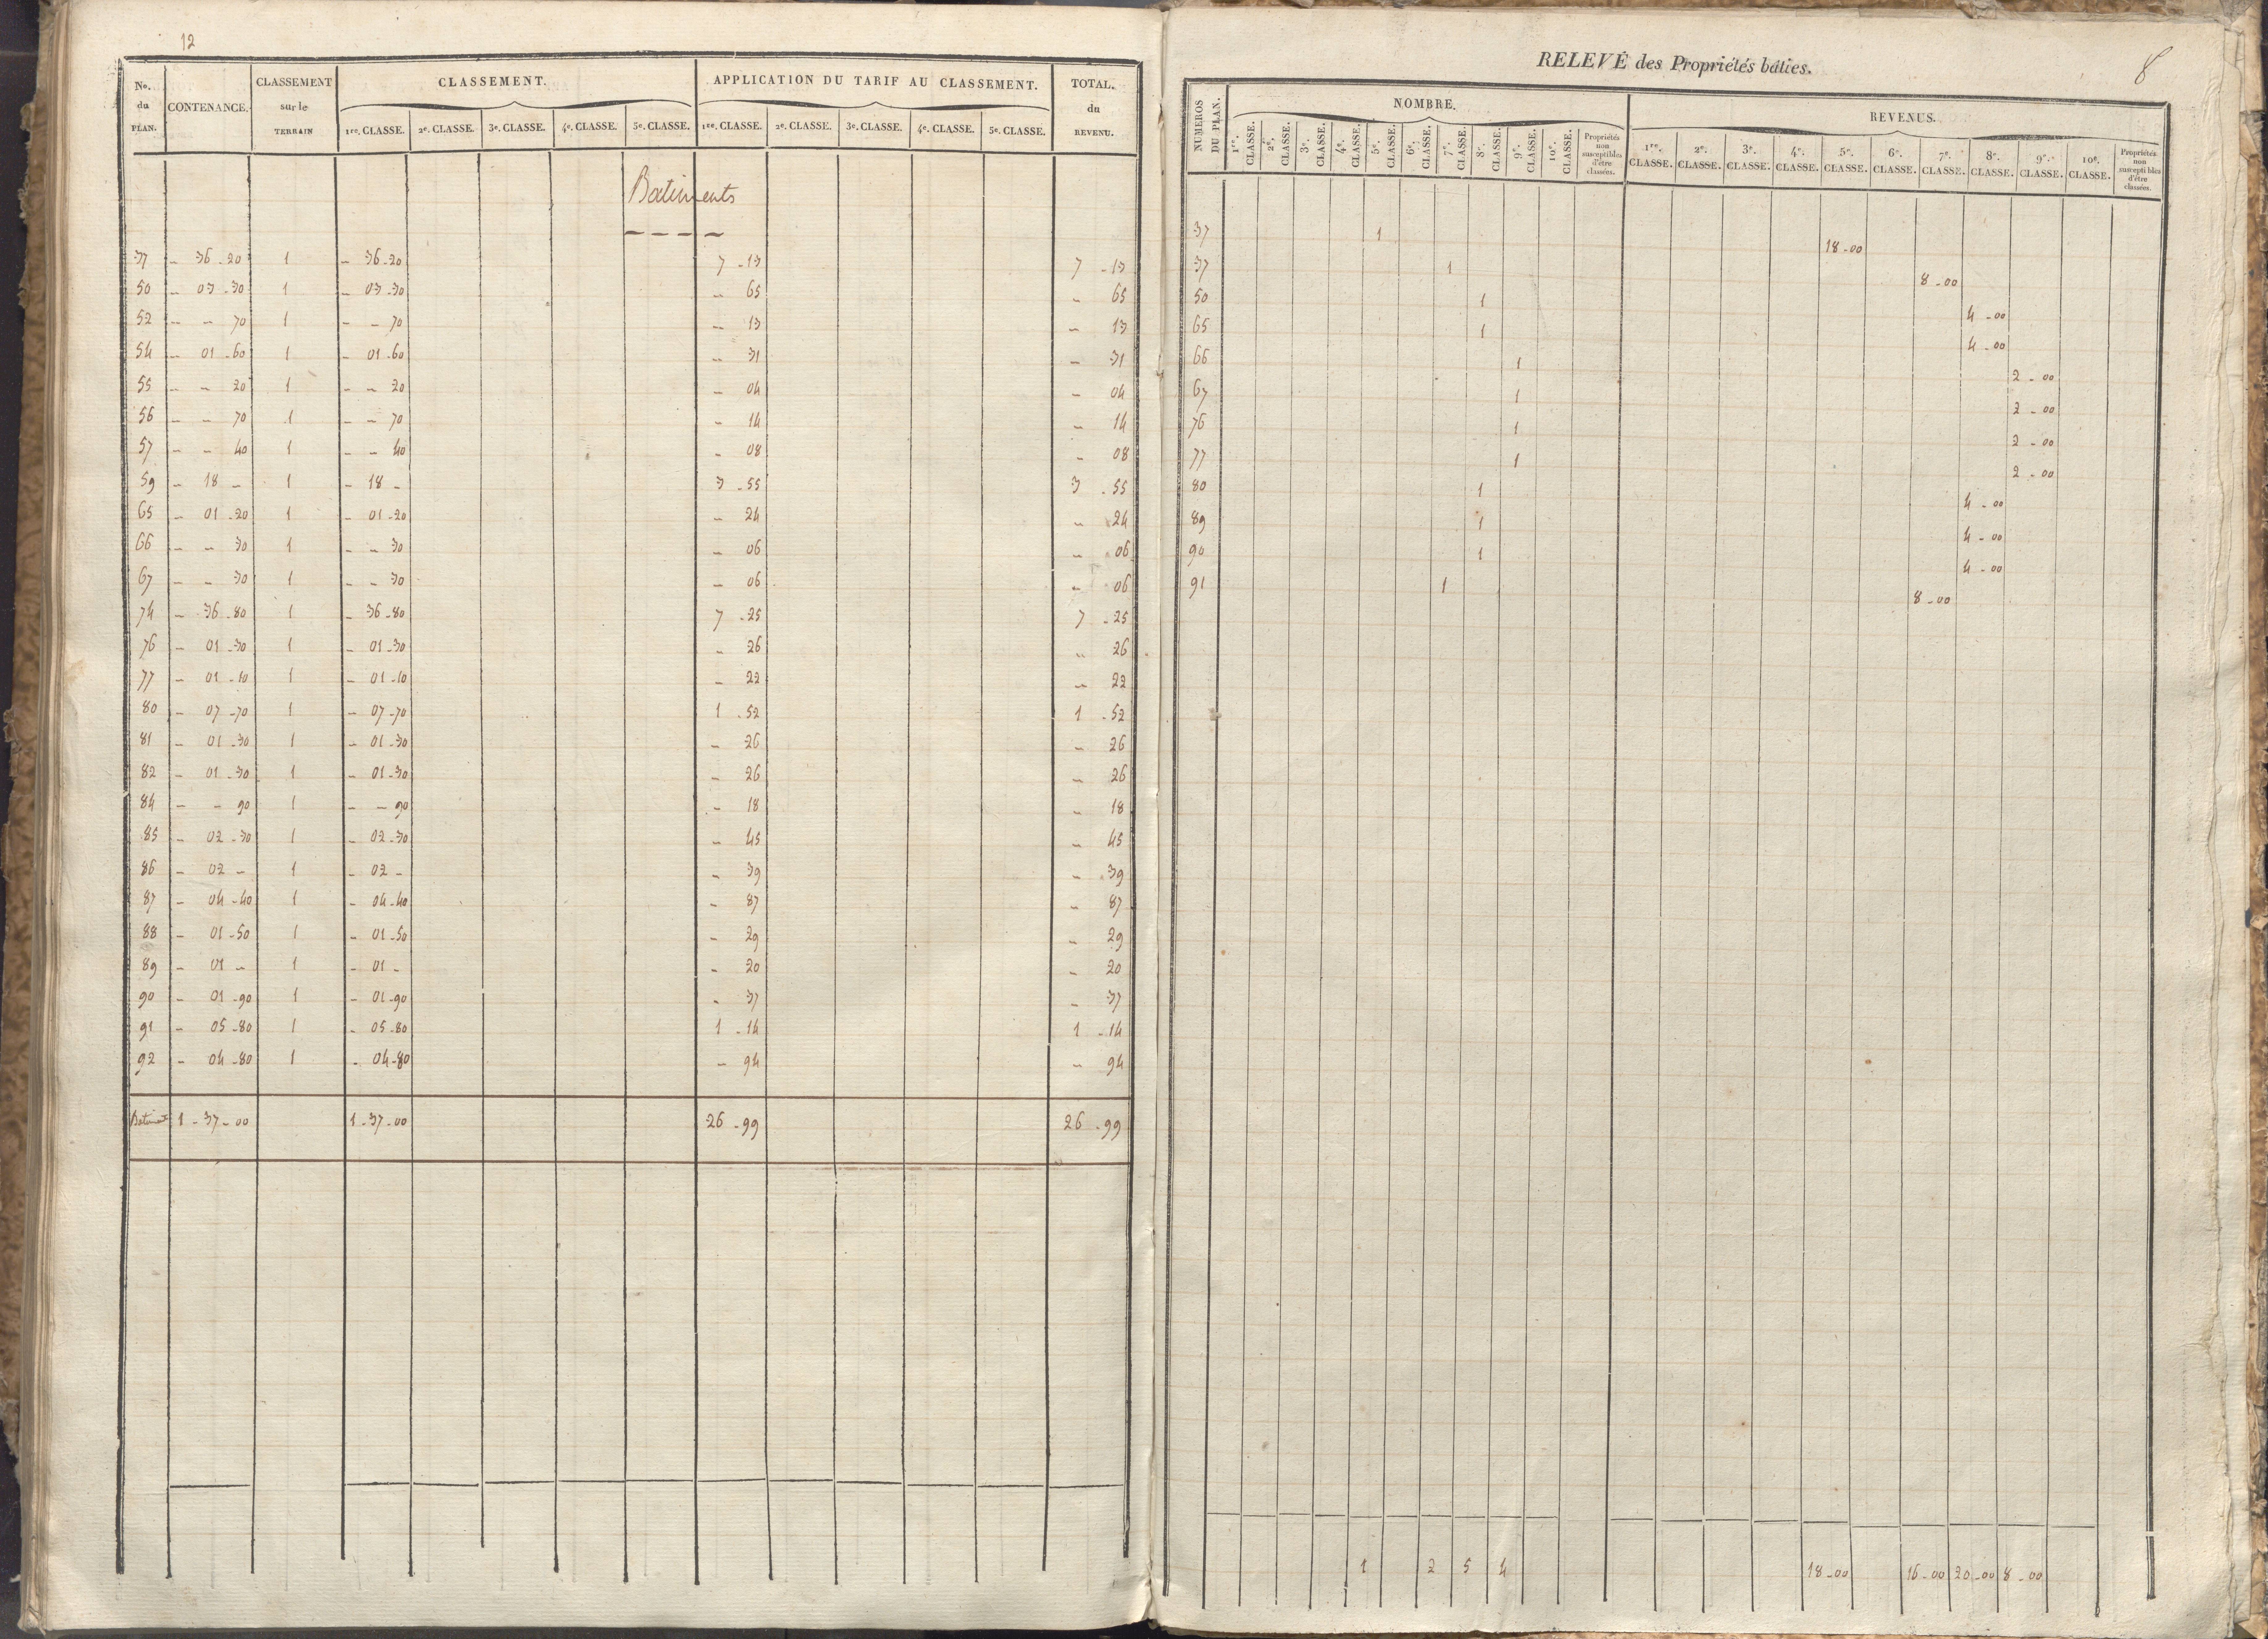 12
No. du PLAN. CONTENANCE. CLASSEMENT sur le TERRAIN CLASSEMENT. APPLICATION DU TARIF AU CLASSEMENT. TOTAL. du REVENU.
1re. CLASSE. 2e. CLASSE. 3e. CLASSE. 4e. CLASSE. 5e. CLASSE. 1re. CLASSE. 2e. CLASSE. 3e. CLASSE. 4e. CLASSE. 5e. CLASSE.
Batiments
37 - 36-20 1 - 36-20 7-13 7-13
50 - 03-30 1 - 03-30 - 65 - 65
52 - - 70 1 - - 70 - 13 - 13
54 - 01-60 1 - 01-60 - 31 - 31
55 - - 20 1 - - 20 - 04 - 04
56 - - 70 1 - - 70 - 14 - 14
57 - - 40 1 - - 40 - 08 - 08
59 - 18 - 1 - 18 - 3-55 3-55
65 - 01-20 1 - 01-20 - 24 - 24
66 - - 30 1 - - 30 - 06 - 06
67 - - 30 1 - - 30 - 06 - 06
74 - 36-80 1 - 36-80 7-25 7-25
76 - 01-30 1 - 01-30 - 26 - 26
77 - 01-10 1 - 01-10 - 22 - 22
80 - 07-70 1 - 07-70 1-52 1-52
81 - 01-30 1 - 01-30 - 26 - 26
82 - 01-30 1 - 01-30 - 26 - 26
84 - - 90 1 - - 90 - 18 - 18
85 - 02-30 1 - 02-30 - 45 - 45
86 - 02 - 1 - 02 - - 39 - 39
87 - 04-40 1 - 04-40 - 87 - 87
88 - 01-50 1 - 01-50 - 29 - 29
89 - 01 - 1 - 01 - - 20 - 20
90 - 01-90 1 - 01-90 - 37 - 37
91 - 05-80 1 - 05-80 1-14 1-14
92 - 04-80 1 - 04-80 - 94 - 94
Batiments 1-37-00 1-37-00 26-99 26-99
8
RELEVÉ des Propriétés bâties.
NUMEROS DU PLAN. NOMBRE. REVENUS.
1re. CLASSE. 2e. CLASSE. 3e. CLASSE. 4e. CLASSE. 5e. CLASSE. 6e. CLASSE. 7e. CLASSE. 8e. CLASSE. 9e. CLASSE. 10e. CLASSE. Propriétés non susceptibles d'être classées. 1re. CLASSE. 2e. CLASSE. 3e. CLASSE. 4e. CLASSE. 5e. CLASSE. 6e. CLASSE. 7e. CLASSE. 8e. CLASSE. 9e. CLASSE. 10e. CLASSE. Propriétés non susceptibles d'être classées.
37 1 18-00
37 1 8-00
50 1 4-00
65 1 4-00
66 1 2-00
67 1 2-00
76 1 2-00
77 1 2-00
80 1 4-00
89 1 4-00
90 1 4-00
91 1 8-00
1 2 5 4 18-00 16-00 20-00 8-00